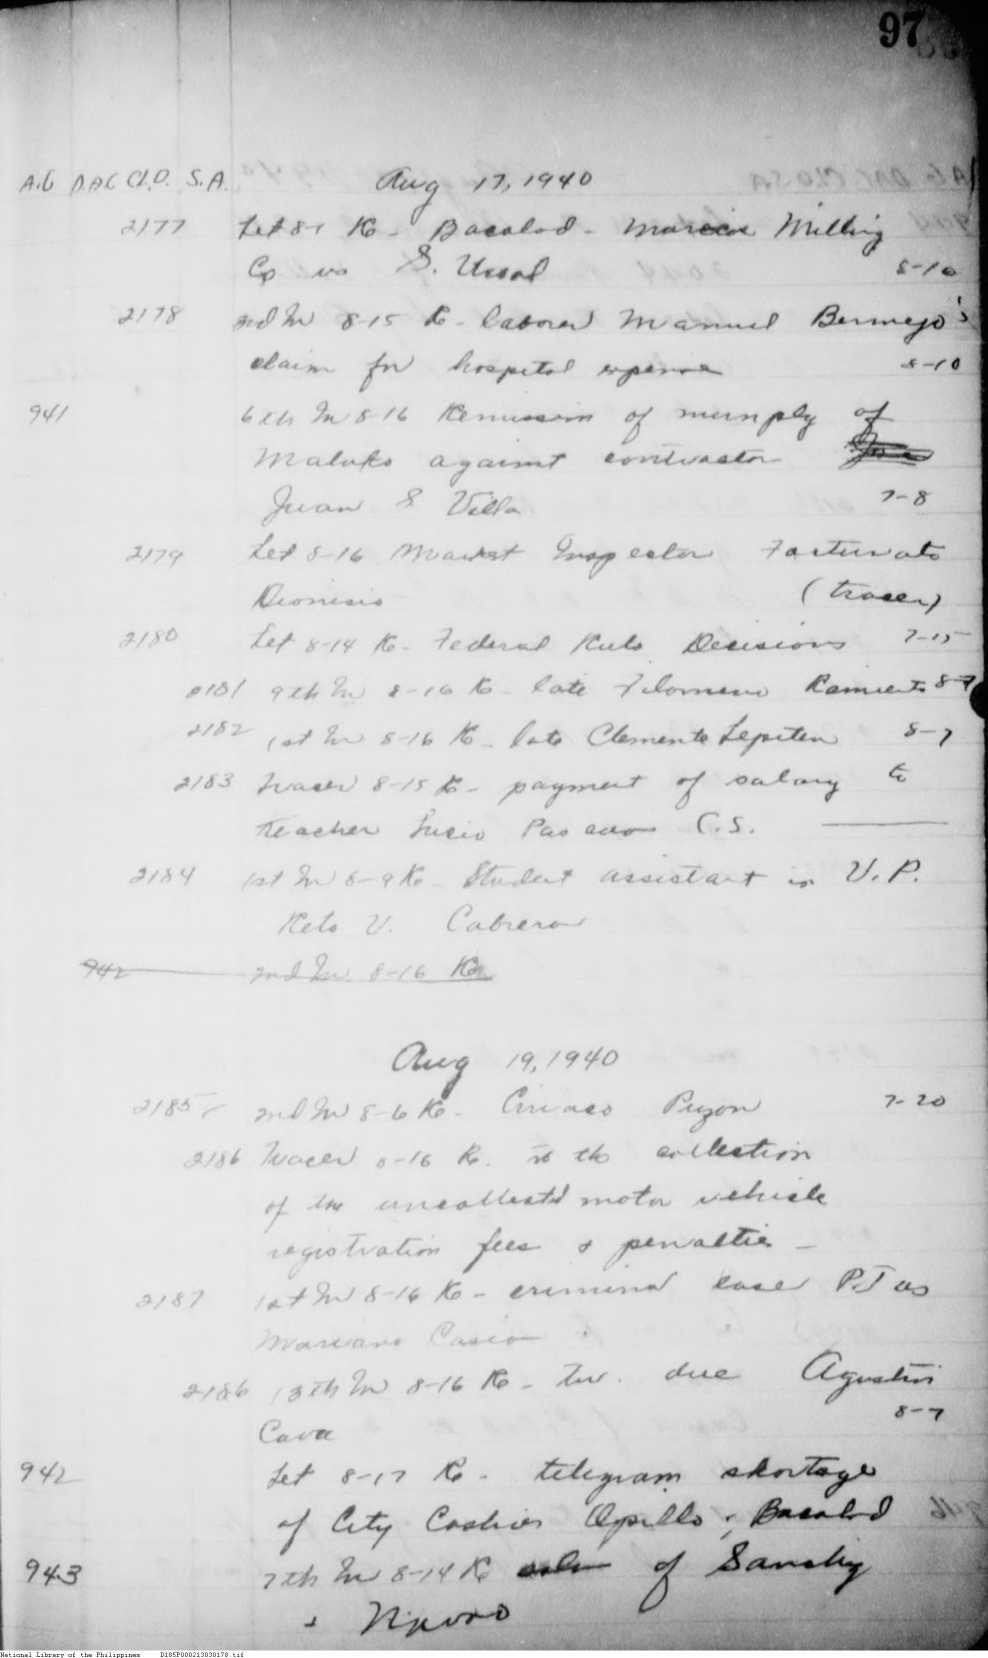 97
A.G D.A.C Cl.D. S.A. Aug 17, 1940
2177 Let 8-9 Re- Bacolod - Murcia Milling
Co vs S. 8-10
2178 2nd In 8-15 Re- laborer Manuel Bermejo's
claim for hospital expense 8-10
941 6th In 8-16 Remission of of
against contractor
Juan S Villa 7-8
2179 Let 8-16 Market Inspector Fortunato
Dionisio (tracer)
2180 Let 8-14 Re- Federal Decisions 7-15
2181 9th In 8-16 Re- late Filomeno 8-7
2182 1st In 8-16 Re- late Clemente 8-7
2183 Tracer 8-15 Re- payment of salary to
teacher Lucio C.S.
2184 1st In 8-9 Re- Student assistant in U.P.
V. Cabrera
942 2nd In. 8-16 Re
Aug 19, 1940
2185 2nd In 8-6 Re- Ciriaco Puzon 7-20
2186 Tracer 8-16 Re. the collection
of the uncollected motor vehicle
registration fees & penalties -
2187 1st In 8-16 Re- criminal case P.I vs
Mariano
2186 13th In 8-16 Re- due Agustin
8-7
Cava
942 Let 8-17 Re- telegram shortage
of City Cashier Opillo, Bacolod
943 7th In 8-14 Re of
&
National Library of the Philippines D185P000213030178.tif